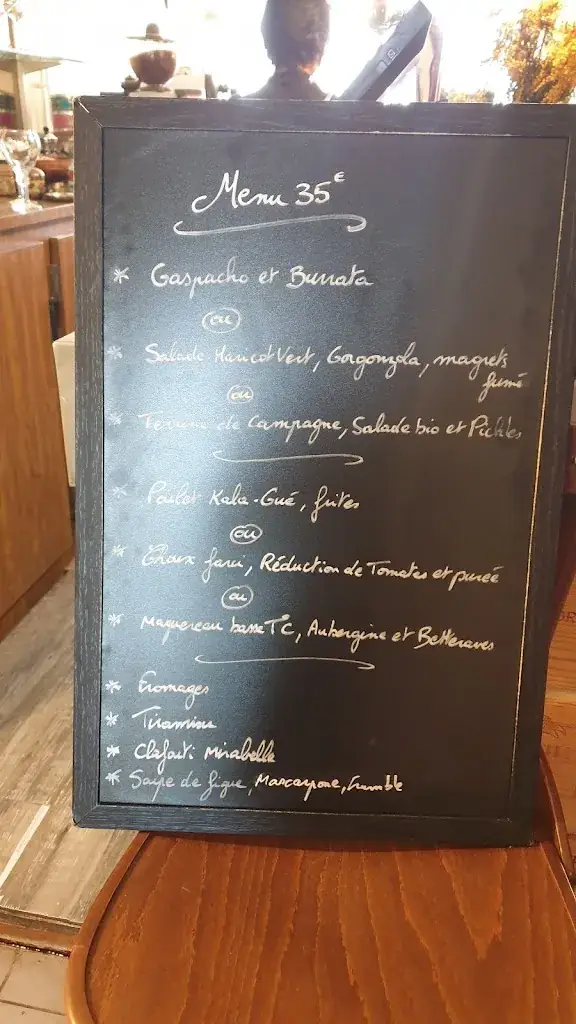 Menu 35€
* Gaspacho et Burrata
ou
* Salade Haricot Vert, Gorgonzola, magrets
fumé
ou
* Terrine de Campagne, Salade bio et Pickles
* Poulet Kala-Gué, frites
ou
* Choux farci, Réduction de Tomates et pureé
ou
* Maquereau basse T°C, Aubergine et Betteraves
* Fromages
* Tiramisu
* Clafouti Mirabelle
* Soupe de figue, Mascarpone, Crumble